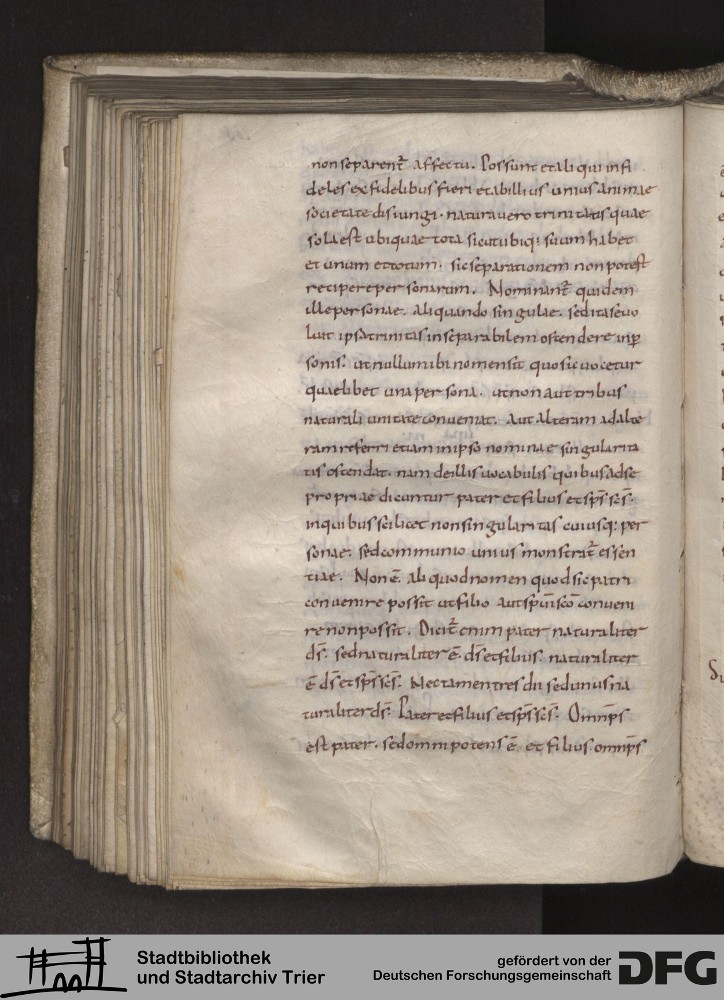 non separent̄ affectu. Possunt et aliqui infi
deles ex fidelibus fieri et ab illius unius animae
societate disiungi. natura uero trinitatis quae
sola est ubiquae tota sicut ubiq; suum habet
et unum et totum. sic separationem non potest
recipere personarum. Nominant̄ quidem
ille personae. aliquando singulae. sed ita se uo
luit ipsa trinitas inseparabilem ostendere in ꝑ
sonis. ut nullum ibi nomen sit quo sic uocetur
quaelibet una persona. ut non aut tribus
naturali unitate conueniat. Aut alteram ad alte
ram referri etiam in ipso nominae singularita
tis ostendat. nam de illis uocabulis quibus ad se
propriae dicuntur pater et filius et sp̄s sc̄s.
in quibus scilicet non singularitas cuiusq; per
sonae. sed communio unius monstrat̄ essen
tiae. Non ē. aliquod nomen quod sic patri
conuenire possit ut filio aut sp̄ui sc̄o conueni
re non possit. Dicit̄ enim pater naturaliter
d̄s. sed naturaliter ē. d̄s et filius. naturaliter
ē d̄s et sp̄s sc̄s. Nec tamen tres dii sed unus na
turaliter d̄s. Pater et filius et sp̄s sc̄s. Omnip̄s
est pater. sed omnipotens ē. et filius. omnip̄s
Stadtbibliothek
und Stadtarchiv Trier
gefördert von der
Deutschen Forschungsgemeinschaft
DFG